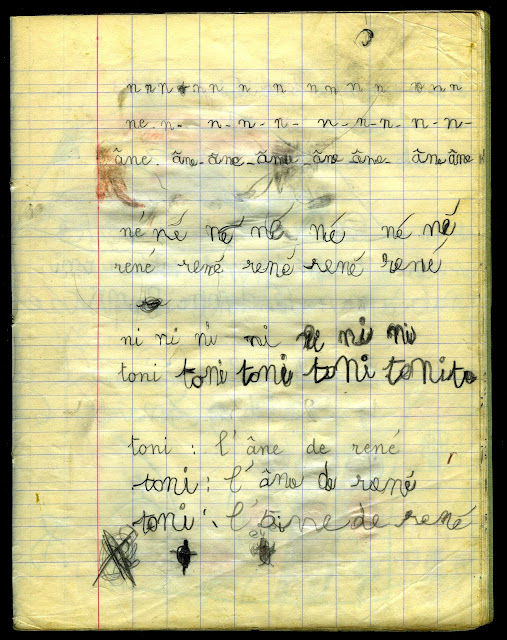 n n n n n n n n n n n n n n n
ne n- n-n-n- n-n-n- n-n-
âne âne-âne-âne-âne âne- âne âne
né né né né né né né
rené rené rené rené rené
ni ni ni ni ni ni ni
toni toni toni toni toni to
toni : l'âne de rené
toni : l'âne de rené
toni : l'âine de rené